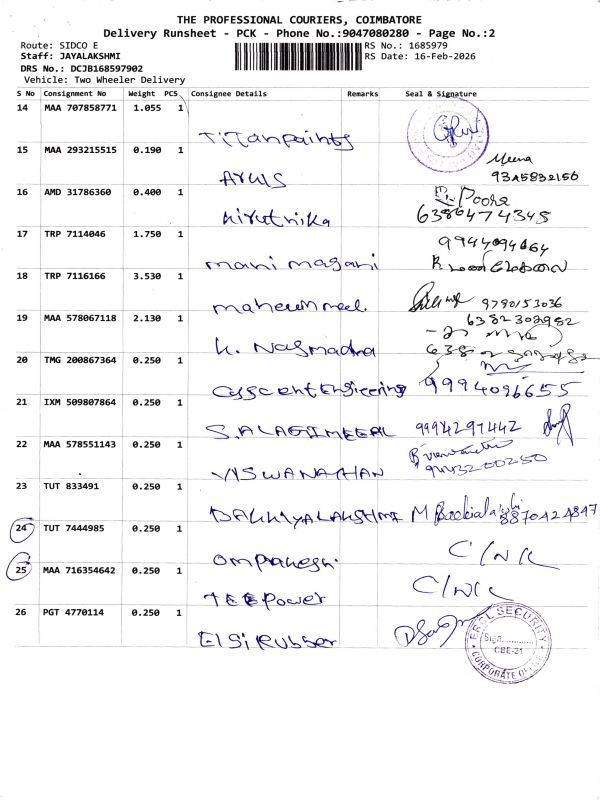 THE PROFESSIONAL COURIERS, COIMBATORE
Delivery Runsheet - PCK - Phone No.:9047080280 - Page No.:2
Route: SIDCO E
RS No.: 1685979
Staff: JAYALAKSHMI
RS Date: 16-Feb-2026
DRS No.: DCJB168597902
Vehicle: Two Wheeler Delivery
S No Consignment No Weight PCS Consignee Details Remarks Seal & Signature
14 MAA 707858771 1.055 1
Titanpaints
15 MAA 293215515 0.190 1
Meena
Arus
16 AMD 31786360 0.400 1
Pooja
kiruthika
6380474348
17 TRP 7114046 1.750 1
mani magani
18 TRP 7116166 3.530 1
9790153036
19 MAA 578067118 2.130 1
6382302982
20 TMG 200867364 0.250 1
Engineering 9994096655
21 IXM 509807864 0.250 1
9994297442
22 MAA 578551143 0.250 1
VISWANATHAN
23 TUT 833491 0.250 1
8870424847
24 TUT 7444985 0.250 1
C/N/L
25 MAA 716354642 0.250 1
TEEPower
26 PGT 4770114 0.250 1
Elgi Rubber
SECURITY
Sign.
CBE-21
CORPORATE OFFICE